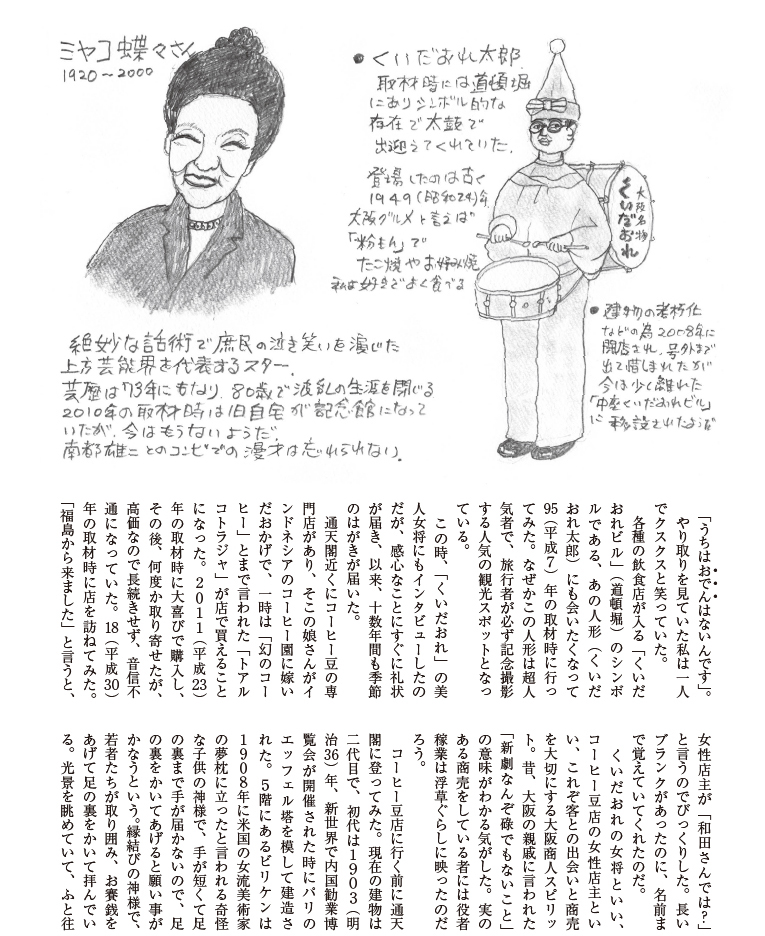 ミヤコ蝶々さん
1920～2000
絶妙な話術で庶民の泣き笑いを演じた
上方芸能界を代表するスター。
芸歴は73年にもなり、80歳で波乱の生涯を閉じる
2010年の取材時は旧自宅が記念館になって
いたが、今はもうないようだ。
南都雄二とのコンビでの漫才は忘れられない。
●くいだおれ太郎
取材時には道頓堀
にありシンボル的な
存在で太鼓で
出迎えてくれていた。
登場したのは古く
1949(昭和24)年。
大阪グルメと言えば
「粉もん」で
たこ焼やお好み焼
私は好きでよく食べる
大阪名物
くいだおれ
●建物の老朽化
などの為2008年に
閉店され、号外まで
出て惜しまれたが
今は少し離れた
「中座くいだおれビル」
に移設されたようだ
「うちはおでんはないんです」。
やり取りを見ていた私は一人
でクスクスと笑っていた。
各種の飲食店が入る「くいだ
おれビル」（道頓堀）のシンボ
ルである、あの人形（くいだ
おれ太郎）にも会いたくなって
95（平成7）年の取材時に行っ
てみた。なぜかこの人形は超人
気者で、旅行者が必ず記念撮影
する人気の観光スポットとなっ
ている。
この時、「くいだおれ」の美
人女将にもインタビューしたの
だが、感心なことにすぐに礼状
が届き、以来、十数年間も季節
のはがきが届いた。
通天閣近くにコーヒー豆の専
門店があり、そこの娘さんがイ
ンドネシアのコーヒー園に嫁い
だおかげで、一時は「幻のコー
ヒー」とまで言われた「トアル
コトラジャ」が店で買えること
になった。2011（平成23）
年の取材時に大喜びで購入し、
その後、何度か取り寄せたが、
高価なので長続きせず、音信不
通になっていた。18（平成30）
年の取材時に店を訪ねてみた。
「福島から来ました」と言うと、
女性店主が「和田さんでは？」
と言うのでびっくりした。長い
ブランクがあったのに、名前ま
で覚えていてくれたのだ。
くいだおれの女将といい、
コーヒー豆店の女性店主とい
い、これぞ客との出会いと商売
を大切にする大阪商人スピリッ
ト。昔、大阪の親戚に言われた
「新劇なんぞ碌でもないこと」
の意味がわかる気がした。実の
ある商売をしている者には役者
稼業は浮草ぐらしに映ったのだ
ろう。
コーヒー豆店に行く前に通天
閣に登ってみた。現在の建物は
二代目で、初代は1903（明
治36）年、新世界で内国勧業博
覧会が開催された時にパリの
エッフェル塔を模して建造さ
れた。5階にあるビリケンは
1908年に米国の女流美術家
の夢枕に立ったと言われる奇怪
な子供の神様で、手が短くて足
の裏まで手が届かないので、足
の裏をかいてあげると願い事が
かなうという。縁結びの神様で、
若者たちが取り囲み、お賽銭を
あげて足の裏をかいて拝んでい
る。光景を眺めていて、ふと往